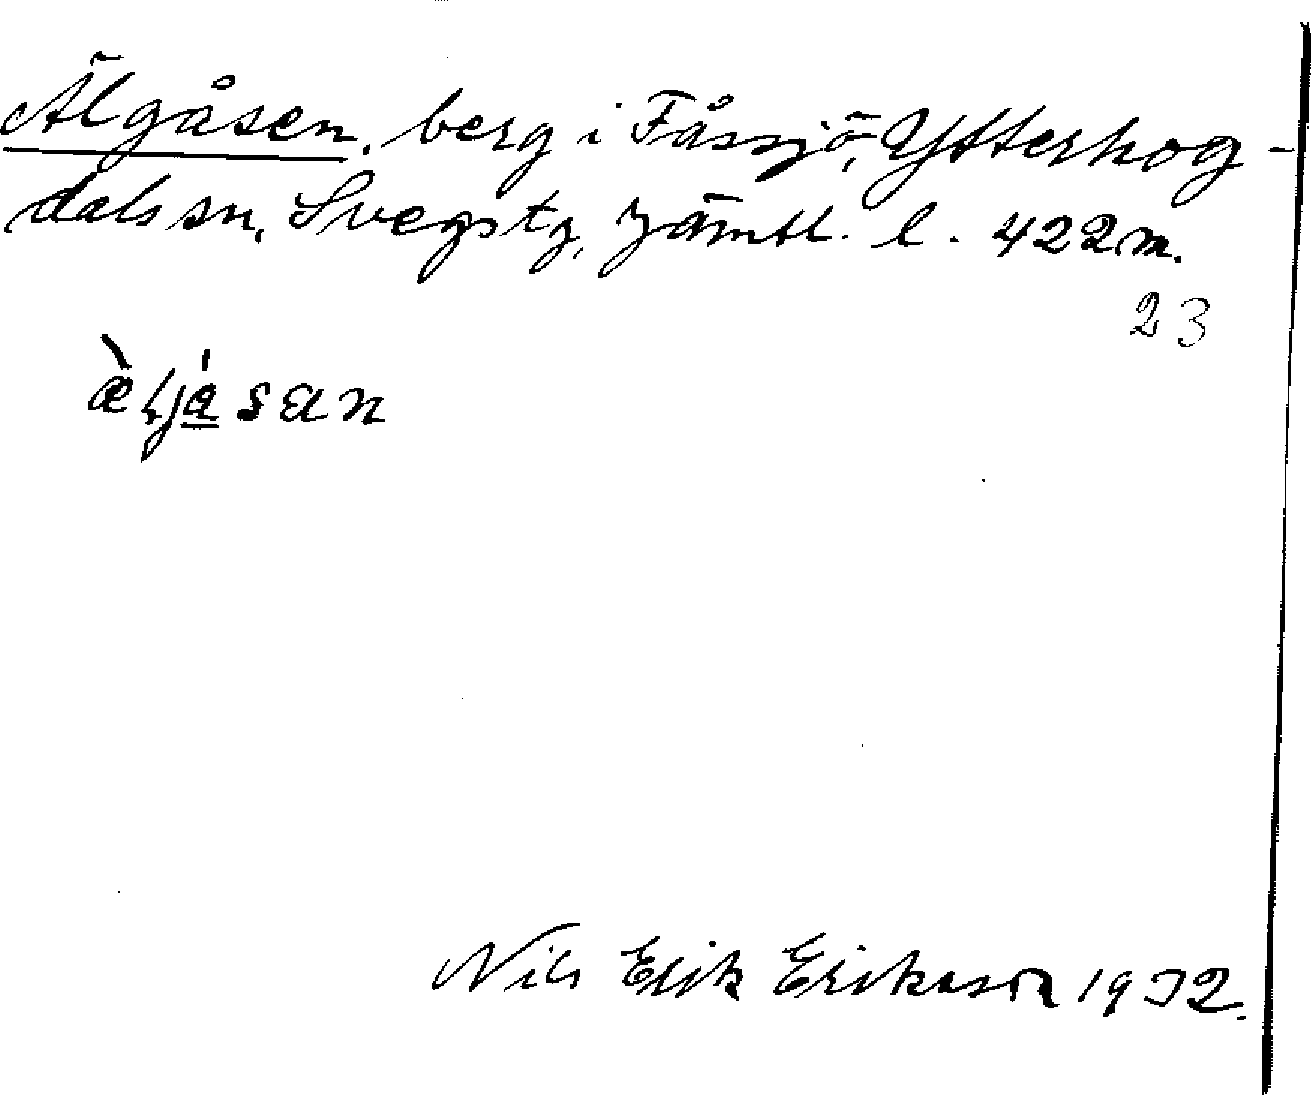 Älgåsen, berg i Fåssjö, Ytterhog-
dals sn, Svegs tg, Jämtl. l. 422 m.
23
Nils Erik Eriksson 1932.